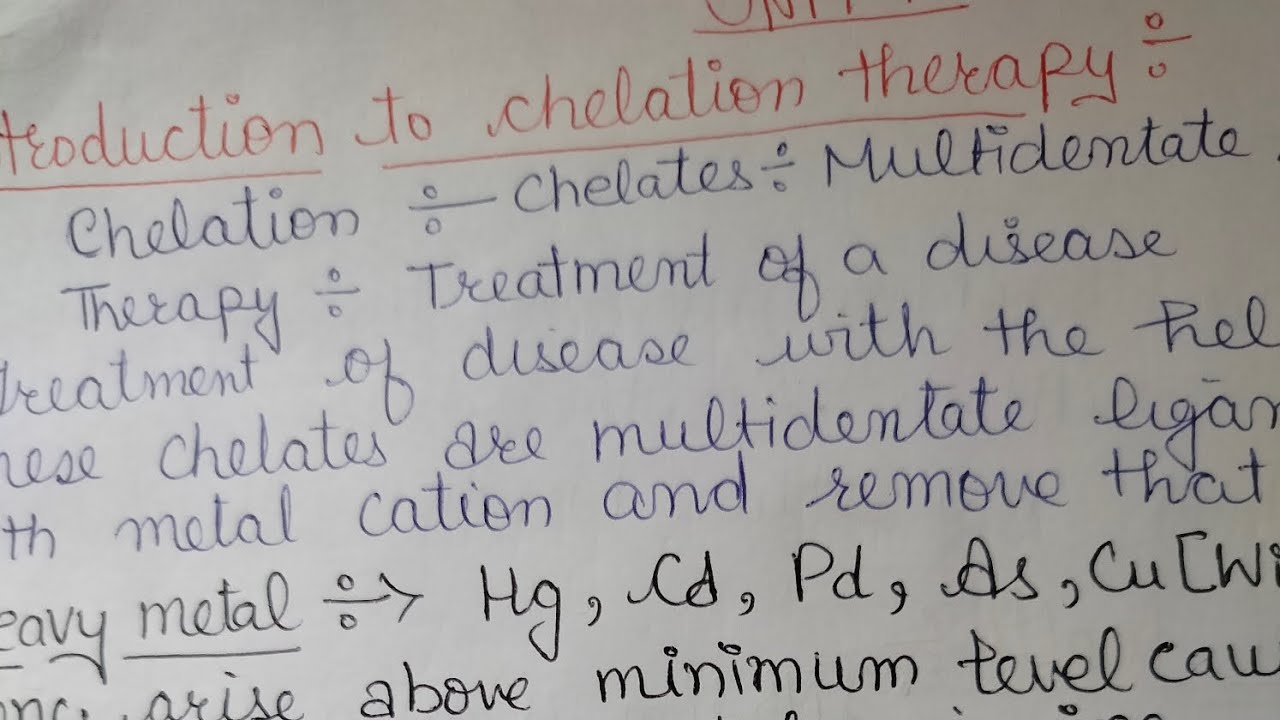 UNIT
troduction to chelation therapy ÷
Chelation ÷ Chelates ÷ Multidentate
Therapy ÷ Treatment of a disease
Treatment of disease with the hel
hese chelates are multidentate ligan
th metal cation and remove that
eavy metal ÷> Hg, Cd, Pd, As, Cu [Wi
onc. arise above minimum level cau